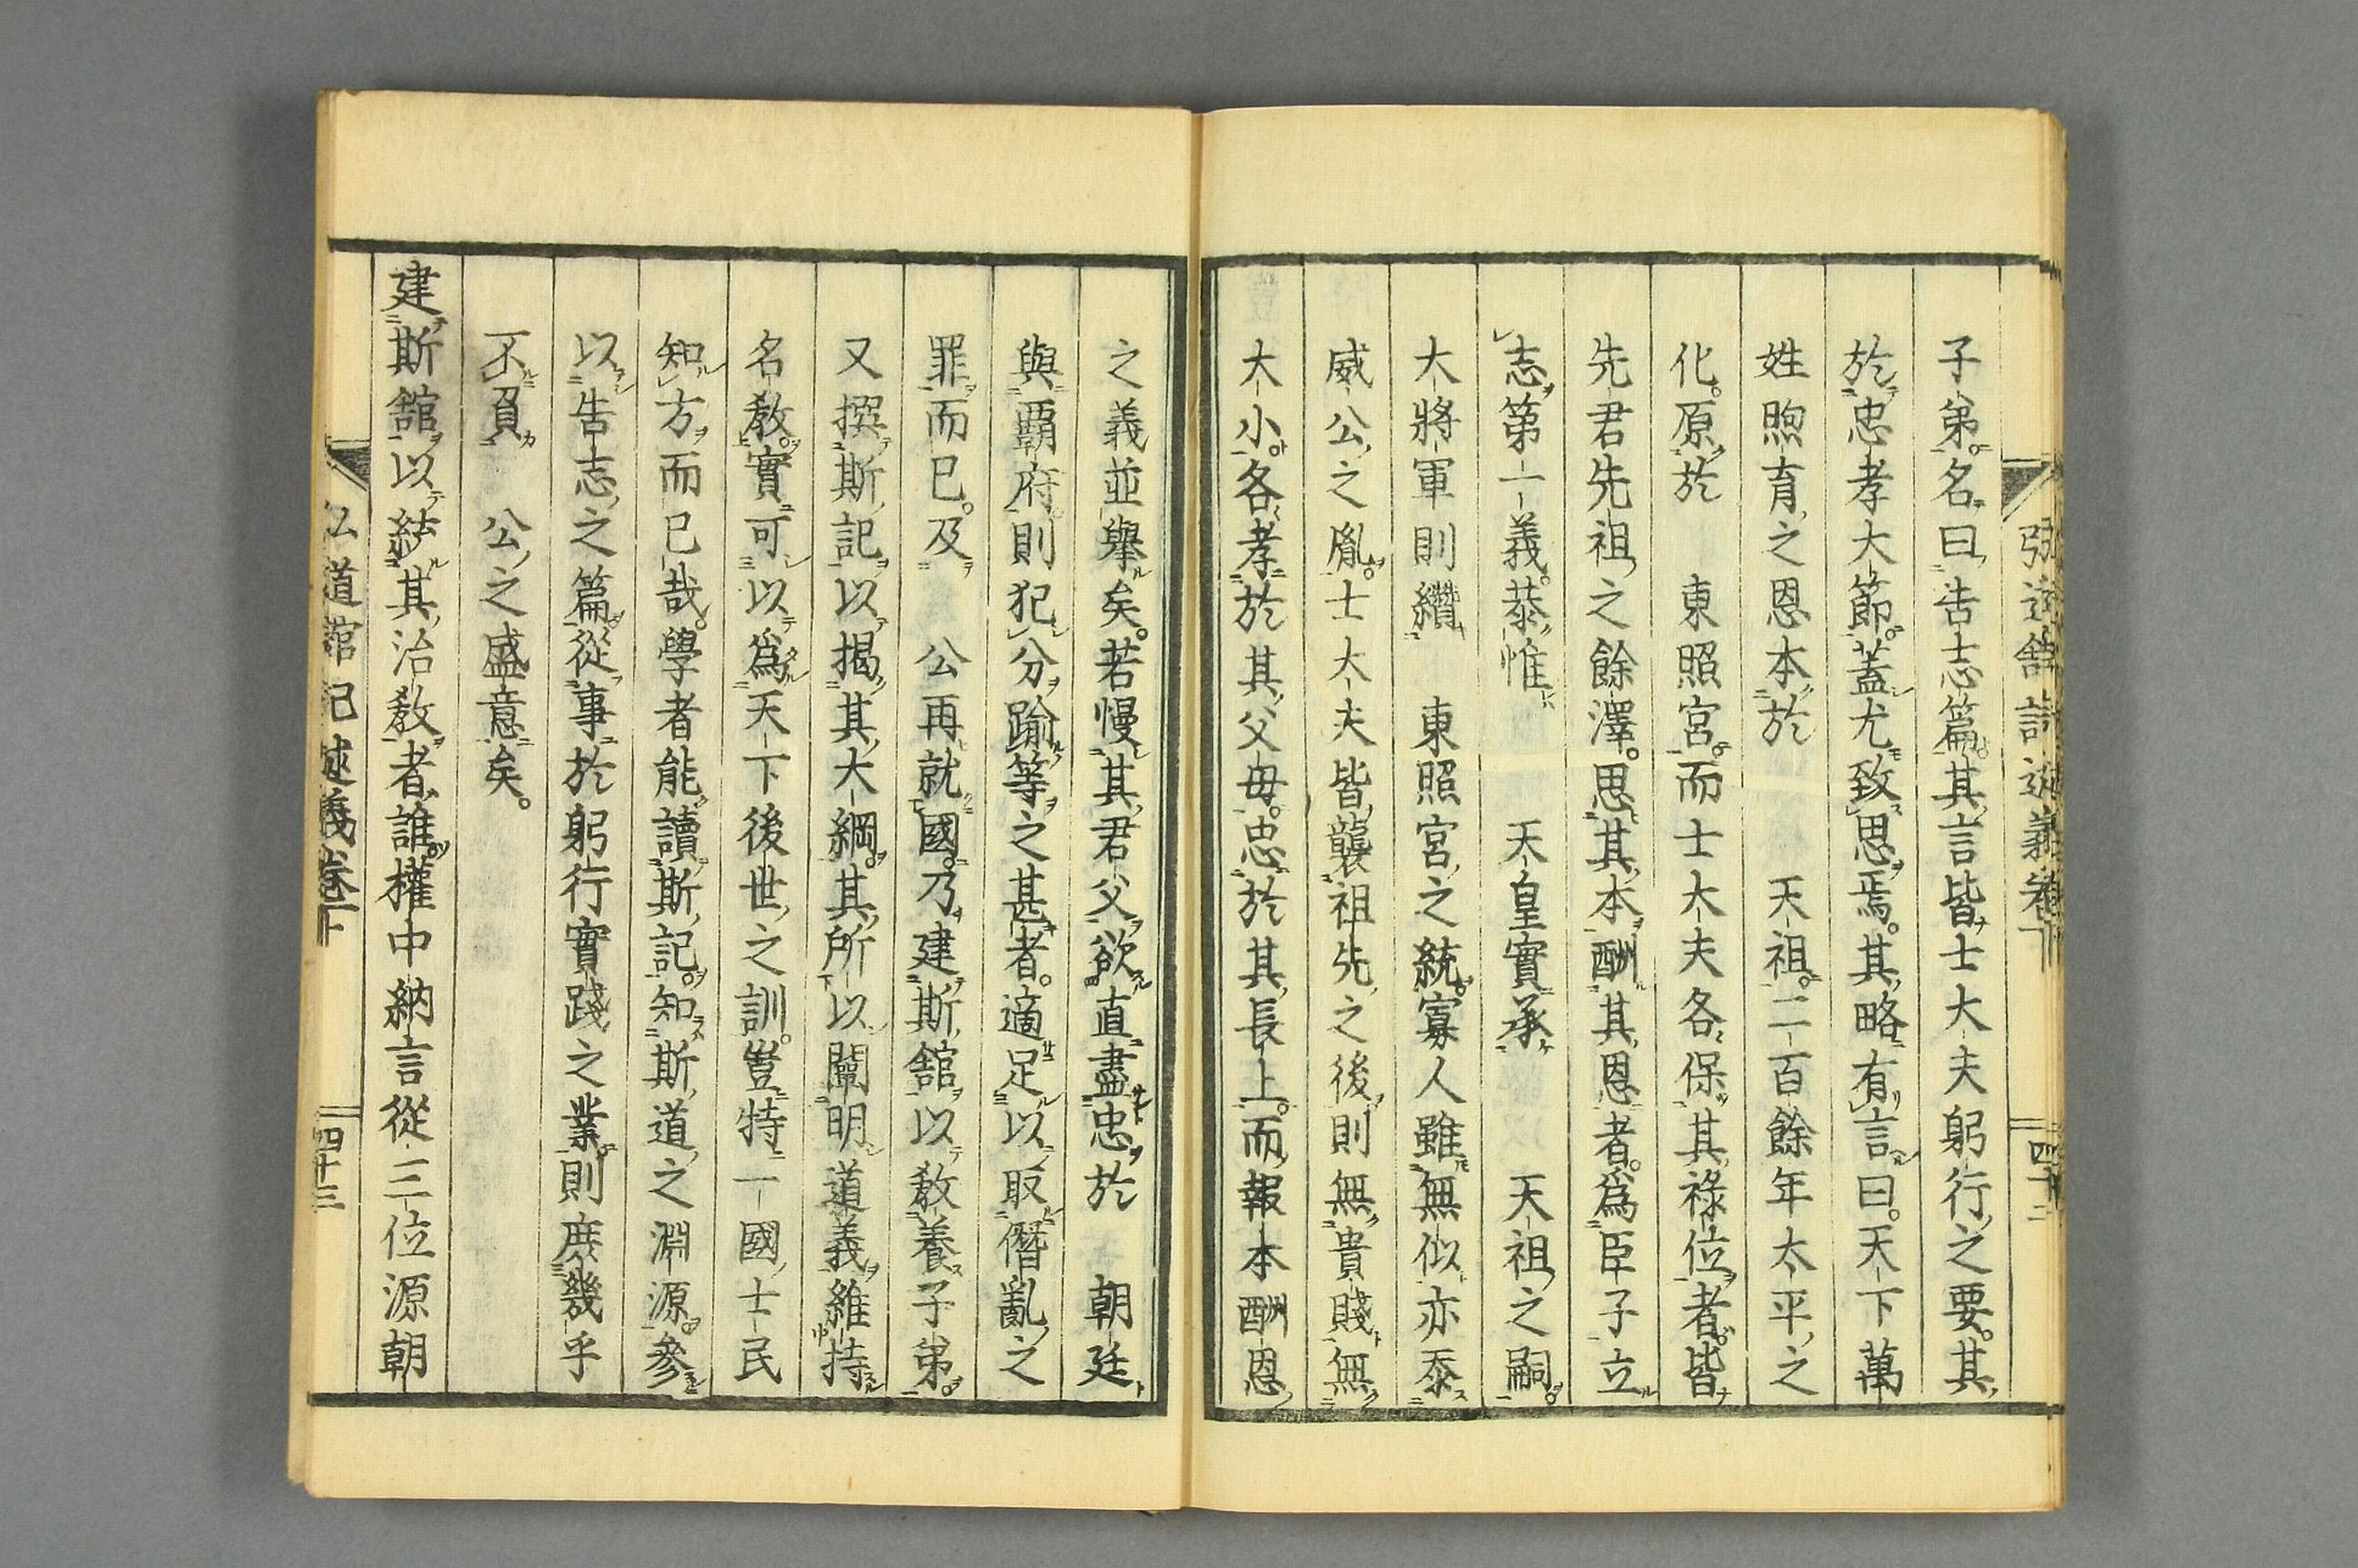 弘道館記述義卷下
四十二
子弟名曰告志篇其言皆士大夫躬行之要其
於忠孝大節蓋尤致思焉其略有言曰天下萬
姓煦育之恩本於　天祖二百餘年太平之
化原於　東照宮而士大夫各保其祿位者皆
先君先祖之餘澤思其本酬其恩者爲臣子立
志第一義恭惟　天皇實承　天祖之嗣
大將軍則纘　東照宮之統寡人雖無似亦忝
威公之胤士大夫皆襲祖先之後則無貴賤無
大小各孝於其父母忠於其長上而報本酬恩
之義並舉矣若慢其君父欲直盡忠於　朝廷
與覇府則犯分踰等之甚者適足以取僭亂之
罪而已及　公再就國乃建斯館以敎養子弟
又撰斯記以揭其大綱其所以闡明道義維持
名敎實可以爲天下後世之訓豈特一國士民
知方而已哉學者能讀斯記知斯道之淵源參
以告志之篇從事於躬行實踐之業則庶幾乎
不負　公之盛意矣
建斯館以統其治敎者誰權中納言從三位源朝
弘道館記述義卷下
四十三